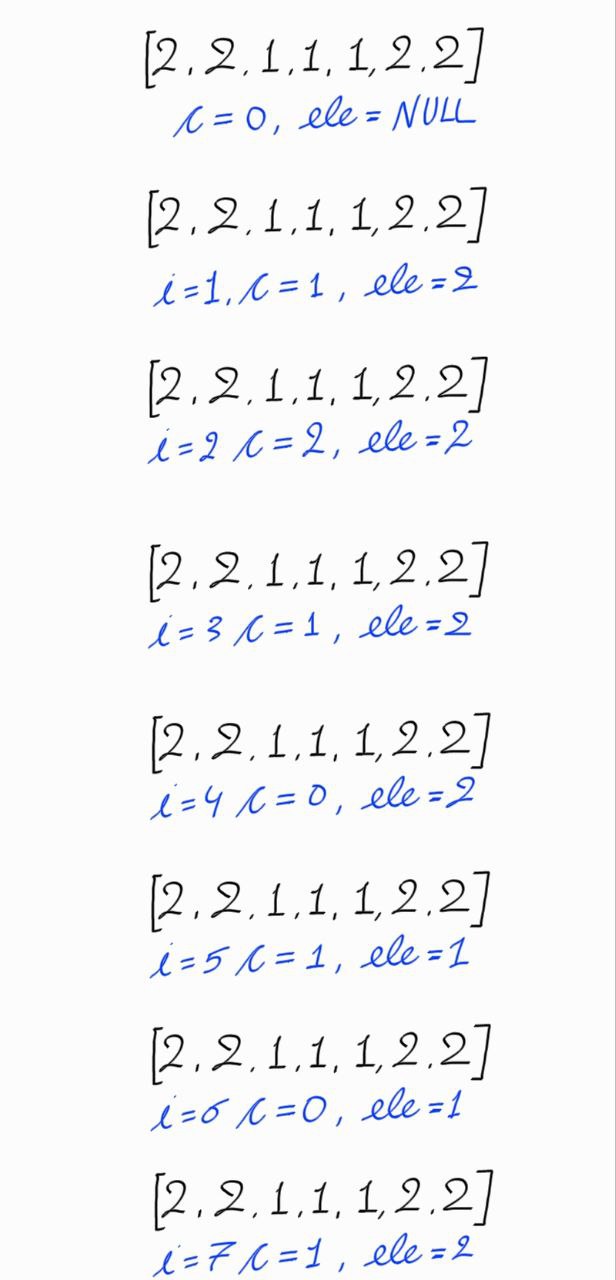 [2, 2, 1, 1, 1, 2, 2]
c = 0, ele = NULL
[2, 2, 1, 1, 1, 2, 2]
i = 1, c = 1, ele = 2
[2, 2, 1, 1, 1, 2, 2]
i = 2 c = 2, ele = 2
[2, 2, 1, 1, 1, 2, 2]
i = 3 c = 1, ele = 2
[2, 2, 1, 1, 1, 2, 2]
i = 4 c = 0, ele = 2
[2, 2, 1, 1, 1, 2, 2]
i = 5 c = 1, ele = 1
[2, 2, 1, 1, 1, 2, 2]
i = 6 c = 0, ele = 1
[2, 2, 1, 1, 1, 2, 2]
i = 7 c = 1, ele = 2